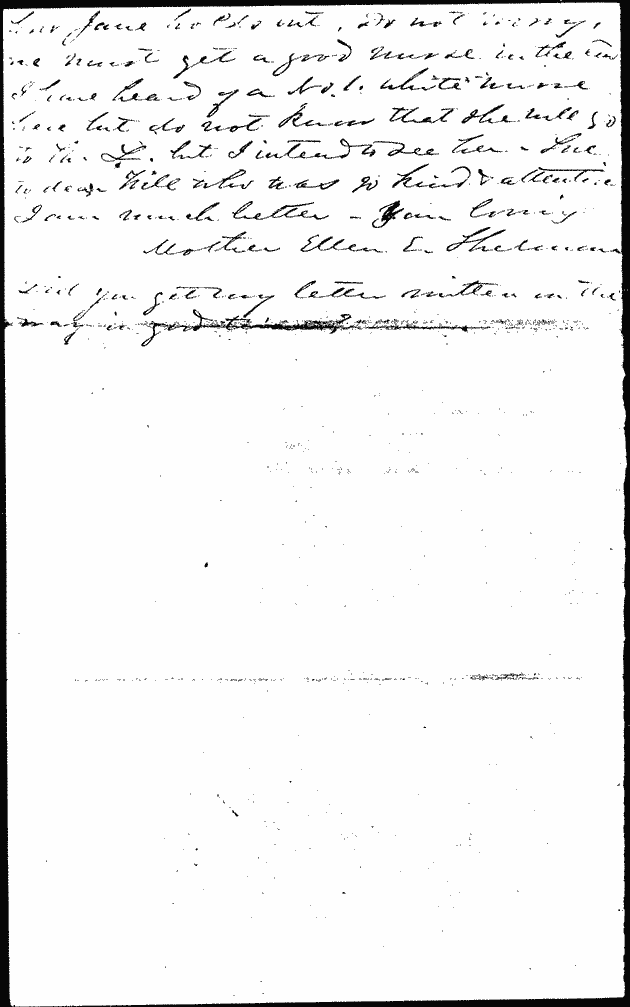 how Jane holds out. Do not worry,
we must get a good nurse in the
I have heard of a No. 1. white nurse
here but do not know that she will go
to the L. but I intend to see her - Love
to dear Will who was so kind & attentive
I am much better - Your loving
Mother Ellen E. Sherman
Did you get my letter written on the
way in good time?